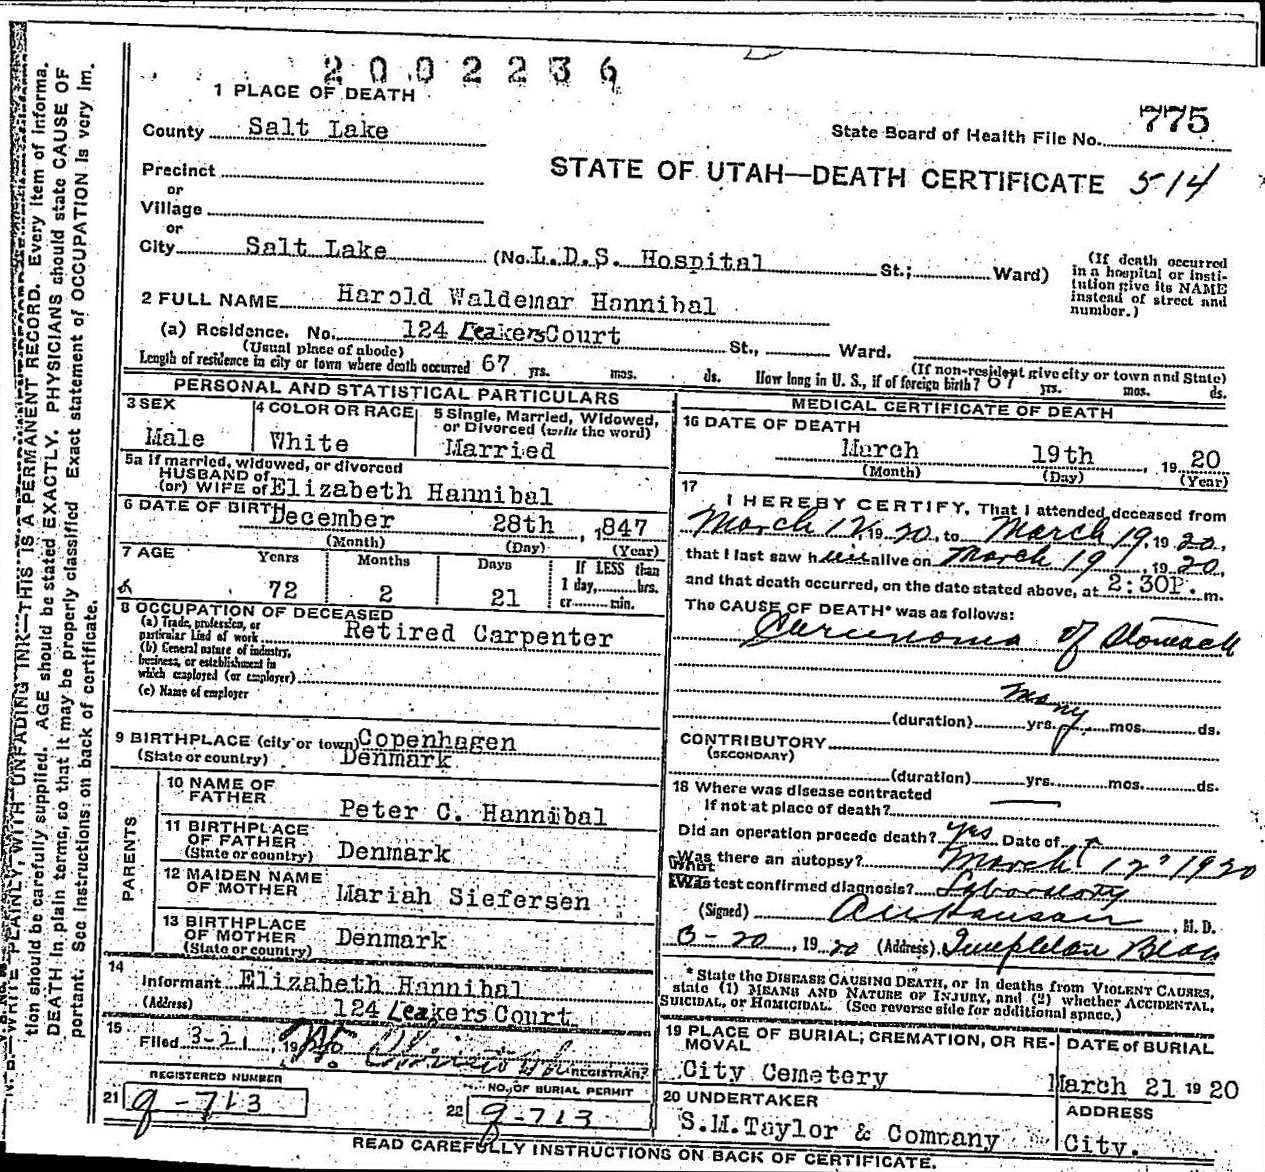 2002236
1 PLACE OF DEATH
775
County Salt Lake
State Board of Health File No.
Precinct
STATE OF UTAH—DEATH CERTIFICATE 514
or
Village
or
City Salt Lake (No. L.D.S. Hospital St.; Ward)
(If death occurred in a hospital or insti-
tution give its NAME
instead of street and
number.)
2 FULL NAME Harold Waldemar Hannibal
(a) Residence. No. 124 LeakersCourt St., Ward.
(Usual place of abode)
(If non-resident give city or town and State)
Length of residence in city or town where death occurred 67 yrs. mos. ds. How long in U. S., if of foreign birth? 67 yrs. mos. ds.
PERSONAL AND STATISTICAL PARTICULARS
3 SEX
Male
4 COLOR OR RACE
White
5 Single, Married, Widowed,
or Divorced (write the word)
Married
5a If married, widowed, or divorced
HUSBAND of
(or) WIFE of Elizabeth Hannibal
6 DATE OF BIRTH
December 28th , 1847
(Month) (Day) (Year)
7 AGE Years Months Days If LESS than
1 day, hrs.
or min.
72 2 21
8 OCCUPATION OF DECEASED
(a) Trade, profession, or
particular kind of work Retired Carpenter
(b) General nature of industry,
business, or establishment in
which employed (or employer)
(c) Name of employer
9 BIRTHPLACE (city or town) Copenhagen
(State or country) Denmark
PARENTS
10 NAME OF
FATHER Peter C. Hannibal
11 BIRTHPLACE
OF FATHER
(State or country) Denmark
12 MAIDEN NAME
OF MOTHER Mariah Siefersen
13 BIRTHPLACE
OF MOTHER
(State or country) Denmark
14
Informant Elizabeth Hannibal
(Address) 124 Leakers Court
15
Filed 3-21, 19
REGISTRAR
REGISTERED NUMBER
21 g-713
NO. OF BURIAL PERMIT
22 g-713
MEDICAL CERTIFICATE OF DEATH
16 DATE OF DEATH
March 19th , 19 20
(Month) (Day) (Year)
17
I HEREBY CERTIFY, That I attended deceased from
March 12, 19 20, to March 19, 19 20,
that I last saw him alive on March 19, 19 20,
and that death occurred, on the date stated above, at 2:30P. m.
The CAUSE OF DEATH* was as follows:
of Stomach
many
(duration) yrs. mos. ds.
CONTRIBUTORY
(SECONDARY)
(duration) yrs. mos. ds.
18 Where was disease contracted
if not at place of death?
Did an operation precede death? yes Date of
Was there an autopsy? March 12 1920
What test confirmed diagnosis? Laboratory
(Signed) , M. D.
3-20, 19 20 (Address) Templeton
* State the DISEASE CAUSING DEATH, or in deaths from VIOLENT CAUSES,
state (1) MEANS AND NATURE OF INJURY, and (2) whether ACCIDENTAL,
SUICIDAL, or HOMICIDAL. (See reverse side for additional space.)
19 PLACE OF BURIAL, CREMATION, OR RE-
MOVAL
City Cemetery
DATE of BURIAL
March 21 19 20
20 UNDERTAKER
S.M.Taylor & Company
ADDRESS
City.
READ CAREFULLY INSTRUCTIONS ON BACK OF CERTIFICATE.
WRITE PLAINLY, WITH UNFADING INK—THIS IS A PERMANENT RECORD. Every item of informa-
tion should be carefully supplied. AGE should be stated EXACTLY. PHYSICIANS should state CAUSE OF
DEATH in plain terms, so that it may be properly classified Exact statement of OCCUPATION is very im-
portant. See instructions on back of certificate.